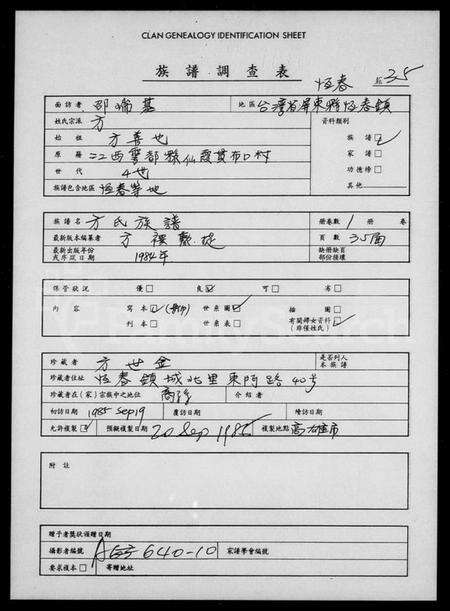 CLAN GENEALOGY IDENTIFICATION SHEET
族譜調查表
恆春 35
面訪者 邵 基 地區 台灣省屏東縣恆春鎮
姓氏宗派 方 資料類別
始祖 方 世 族譜 ☑
原籍 江西 都縣仙霞貫布口村 家譜 □
世代 4世 功德榜 □
族譜包含地區 恆春等地 其他
族譜名 方氏族譜 冊卷數 1 冊 卷
最新版本編纂者 方 頁數 35面
最新出版年份或序跋日期 1984年 缺冊缺頁部份註壞
保管狀況 優□ 良☑ 可□ 劣□
內容 寫本☑ 世系圖☑ 插圖□
刊本□ 世系表□ 有關婦女資料(非僅姓氏)☑
珍藏者 方世金 是否列入本族譜
珍藏者住址 恆春鎮城北里東門路40号
珍藏者在(家)宗族中之地位 裔孫 介紹者
初訪日期 1985 Sep 19 覆訪日期 續訪日期
允許複製☑ 預擬複製日期 20 Sep 1985 複製地點 高雄市
附註
贈予者獎狀領贈日期
攝影者編號 640-10 家譜學會編號
要求複本□ 寄贈地址